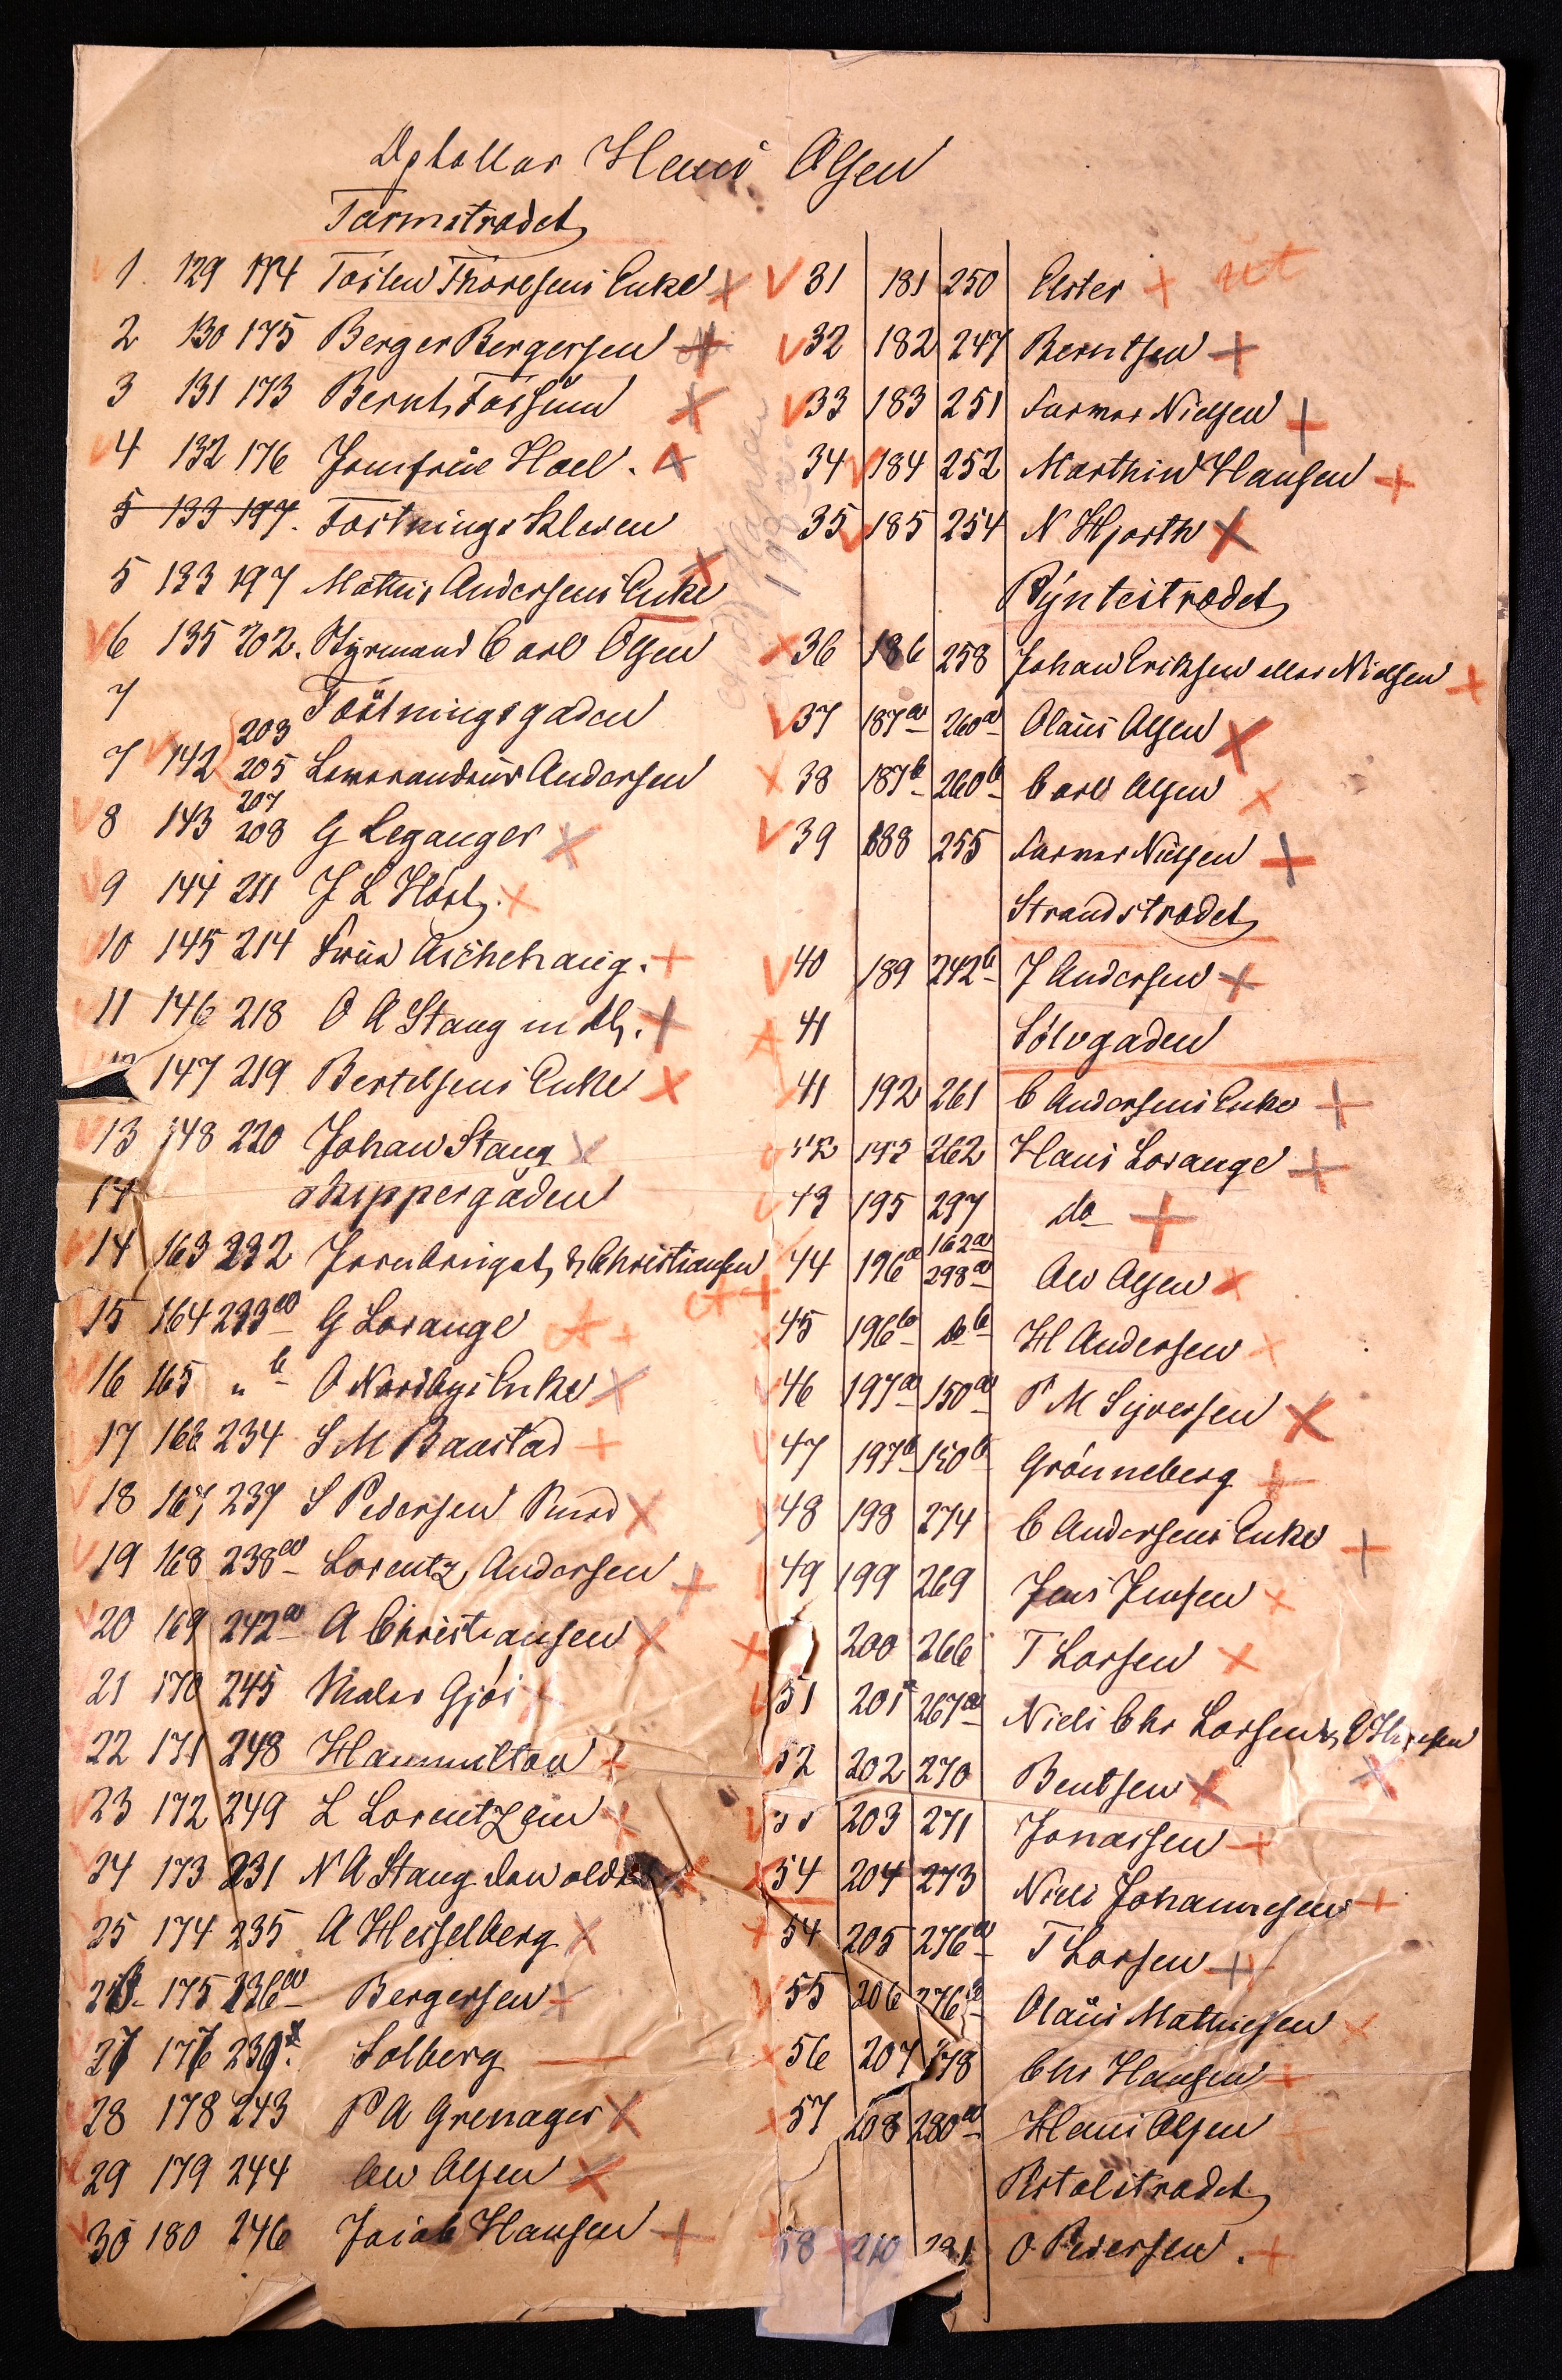 Opholler Hans Olsen
Tarmstrædet
1. 129 174 Tosten Thoresens Enke
2 130 175 Berger Bergersen
3 131 173 Bernt Fossum
4 132 176 Jomfrue Hoel.
5 133 197. Fæstnings Kleven
5 133 197 Mathis Andersens Enke
6 135 202. Styrmand Carl Olsen
7 Fæstningsgaden
203
7 142 205 Andersen
207
8 143 208 G Leganger
9 144 211 J L Høst
10 145 214 Frue Aschehaug.
11 146 218 O A Stang
147 219 Bertelsens Enke
13 148 220 Johan Stang
14 Skippergaden
14 163 232 & Christiansen
15 164 233a G Lorange
16 165 " b O Nordbys Enke
17 166 234 S M Baastad
18 167 237 S Pedersen Ruud
19 168 238a Lorentz Andersen
20 169 242a A Christiansen
21 170 245 Maler Gjøs
22 171 248 Hammilton
23 172 249 L Lorentzen
24 173 231 N A Stang den ældre
25 174 235 A Hesselberg
26 175 236a Bergersen
27 176 239. Solberg
28 178 243 P A Grenager
29 179 244 And Olsen
30 180 246 Jacob Hansen
31 181 250 Elster ut
32 182 247 Berntsen
33 183 251 Farver Nielsen
34 184 252 Marthin Hansen
35 185 254 N Hjorth
Pÿntestrædet
36 186 258 Johan Eriksen eller Nielsen
37 187a 260a Olaus Olsen
38 187b 260b Carl Olsen
39 188 255 Farver Nielsen
Strandstrædet
40 189 242b J Andersen
41 Sølvgaden
41 192 261 C Andersens Enke
42 193 262 Hans Lorange
43 195 297 do
162a
44 196a 298a And Olsen
45 196b do b H Andersen
46 197a 150a P M Syversen
47 197b 150b Grønneberg
48 198 274 C Andersens Enke
49 199 269 Jens Jensen
200 266 T Larsen
51 201 267a Niels Chr Larsen &
52 202 270 Bentsen
203 271 Jonassen
54 204 273 Niels Johannesen
54 205 276a T Larsen
55 206 276 Olaus Mathiesen
56 207 278 Chr Hansen
57 208 280a Hans Olsen
Pistolstrædet
58 210 291 O Pedersen.